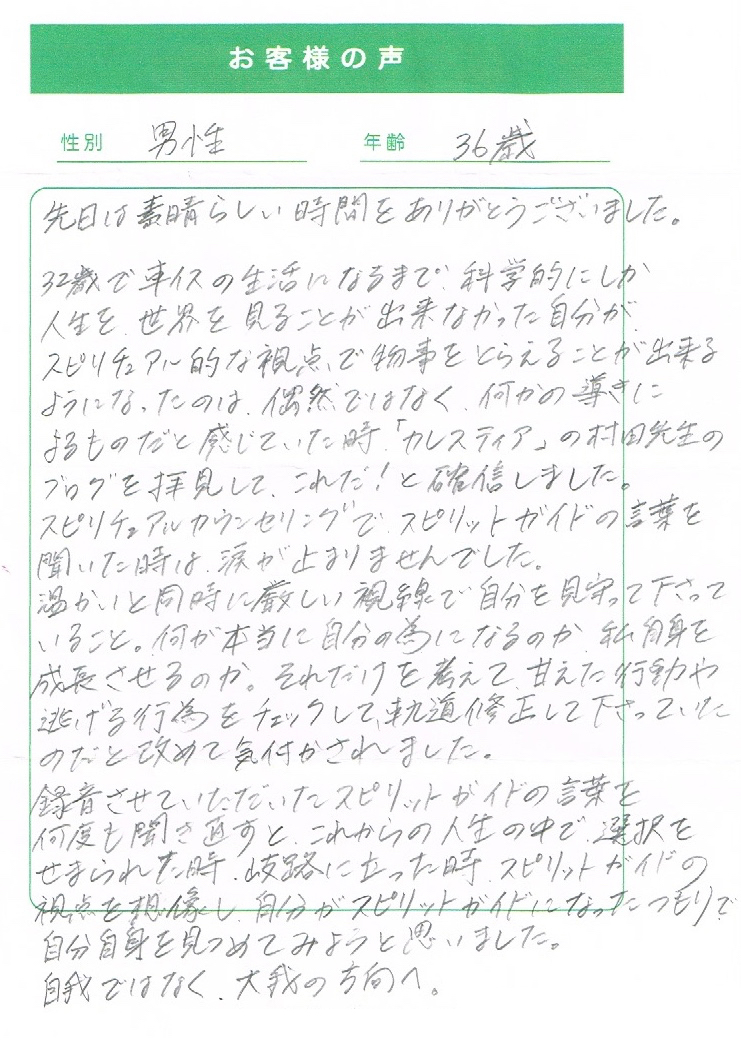 お客様の声
性別 男性 年齢 36歳
先日は素晴らしい時間をありがとうございました。
32歳で車イスの生活になるまで、科学的にしか
人生を、世界を見ることが出来なかった自分が、
スピリチュアル的な視点で物事をとらえることが出来る
ようになったのは、偶然ではなく、何かの導きに
よるものだと感じていた時、「カレスティア」の村田先生の
ブログを拝見して、これだ！と確信しました。
スピリチュアルカウンセリングで、スピリットガイドの言葉を
聞いた時は、涙が止まりませんでした。
温かいと同時に厳しい視線で自分を見守って下さって
いること。何が本当に自分の為になるのか、私自身を
成長させるのか。それだけを考えて、甘えた行動や
逃げる行為をチェックして、軌道修正して下さっていた
のだと改めて気付かされました。
録音させていただいたスピリットガイドの言葉を
何度も聞き直すと、これからの人生の中で、選択を
せまられた時、岐路に立った時、スピリットガイドの
視点を想像し、自分がスピリットガイドになったつもりで
自分自身を見つめてみようと思いました。
自我ではなく、大我の方向へ。